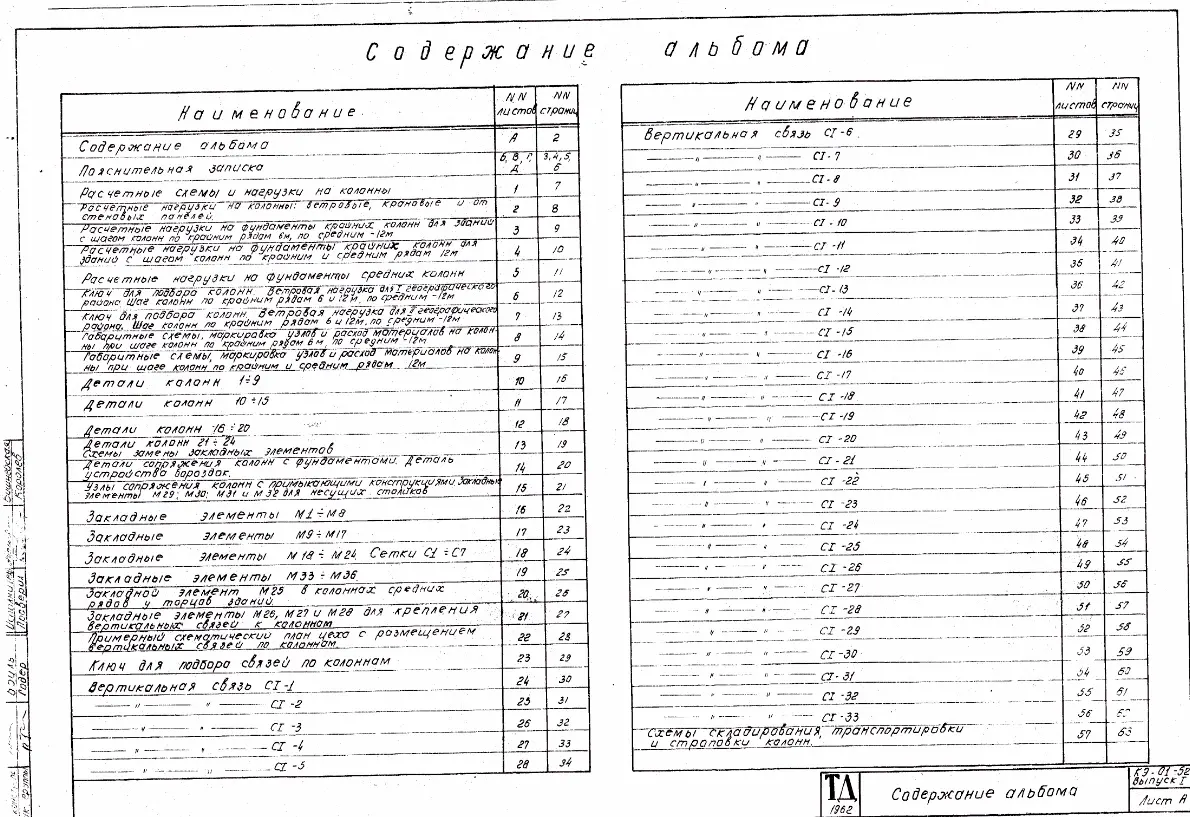 Содержание альбома
Наименование NN листов NN страниц
Содержание альбома А 2
Пояснительная записка Б, В, Г, Д 3, 4, 5, 6
Расчетные схемы и нагрузки на колонны 1 7
Расчетные нагрузки на колонны: ветровые, крановые и от
стеновых панелей. 2 8
Расчетные нагрузки на фундаменты крайних колонн для зданий
с шагом колонн по крайним рядам 6м, по средним -12м 3 9
Расчетные нагрузки на фундаменты крайних колонн для
зданий с шагом колонн по крайним и средним рядам 12м 4 10
Расчетные нагрузки на фундаменты средних колонн 5 11
Ключ для подбора колонн. Ветровая нагрузка для I географического
района. Шаг колонн по крайним рядам 6 и 12м, по средним -12м 6 12
Ключ для подбора колонн. Ветровая нагрузка для географического
района. Шаг колонн по крайним рядам 6 и 12м, по средним -12м 7 13
Габаритные схемы, маркировка узлов и расход материалов на колон-
ны при шаге колонн по крайним рядам 6м, по средним -12м 8 14
Габаритные схемы, маркировка узлов и расход материалов на колон-
ны при шаге колонн по крайним и средним рядам 12м 9 15
Детали колонн 1÷9 10 16
Детали колонн 10÷15 11 17
Детали колонн 16÷20 12 18
Детали колонн 21÷24
Схемы замены закладных элементов 13 19
Детали сопряжения колонн с фундаментами. Деталь
устройства бороздок. 14 20
Узлы сопряжения колонн с примыкающими конструкциями. Закладные
элементы М29; М30; М31 и М32 для несущих столиков 15 21
Закладные элементы М1÷М8 16 22
Закладные элементы М9÷М17 17 23
Закладные элементы М18÷М24. Сетки С1÷С7 18 24
Закладные элементы М33÷М36 19 25
Закладной элемент М25 в колоннах средних
рядов у торцов зданий. 20 26
Закладные элементы М26, М27 и М28 для крепления
вертикальных связей к колоннам 21 27
Примерный схематический план цеха с размещением
вертикальных связей по колоннам. 22 28
Ключ для подбора связей по колоннам 23 29
Вертикальная связь CI-1 24 30
—— " —— " —— CI-2 25 31
—— " —— " —— CI-3 26 32
—— " —— " —— CI-4 27 33
—— " —— " —— CI-5 28 34
Наименование NN листов NN страниц
Вертикальная связь CI-6. 29 35
—— " —— CI-7 30 36
—— " —— CI-8 31 37
—— " —— " —— CI-9 32 38
—— " —— " —— CI-10 33 39
—— " —— " —— CI-11 34 40
—— " —— " —— CI-12 35 41
—— " —— " —— CI-13 36 42
—— " —— " —— CI-14 37 43
—— " —— " —— CI-15 38 44
—— " —— " —— CI-16 39 45
—— " —— " —— CI-17 40 46
—— " —— " —— CI-18 41 47
—— " —— " —— CI-19 42 48
—— " —— " —— CI-20 43 49
—— " —— " —— CI-21 44 50
—— " —— " —— CI-22 45 51
—— " —— " —— CI-23 46 52
—— " —— " —— CI-24 47 53
—— " —— " —— CI-25 48 54
—— " —— " —— CI-26 49 55
—— " —— " —— CI-27 50 56
—— " —— " —— CI-28 51 57
—— " —— " —— CI-29 52 58
—— " —— " —— CI-30 53 59
—— " —— " —— CI-31 54 60
—— " —— " —— CI-32 55 61
—— " —— " —— CI-33 56
Схемы складирования, транспортировки
и строповки колонн. 57 63
ТД
1962
Содержание альбома
КЭ-01-52
Выпуск I
Лист А